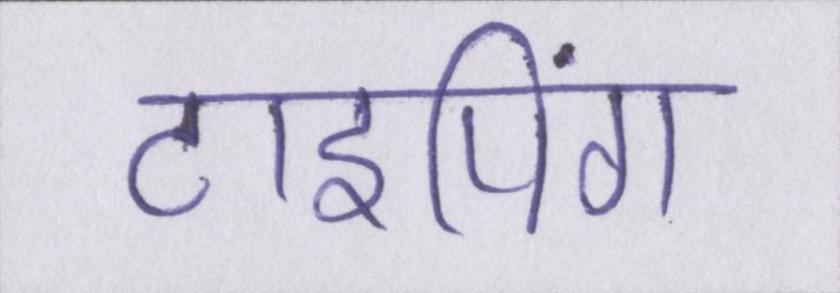 टाइपिंग